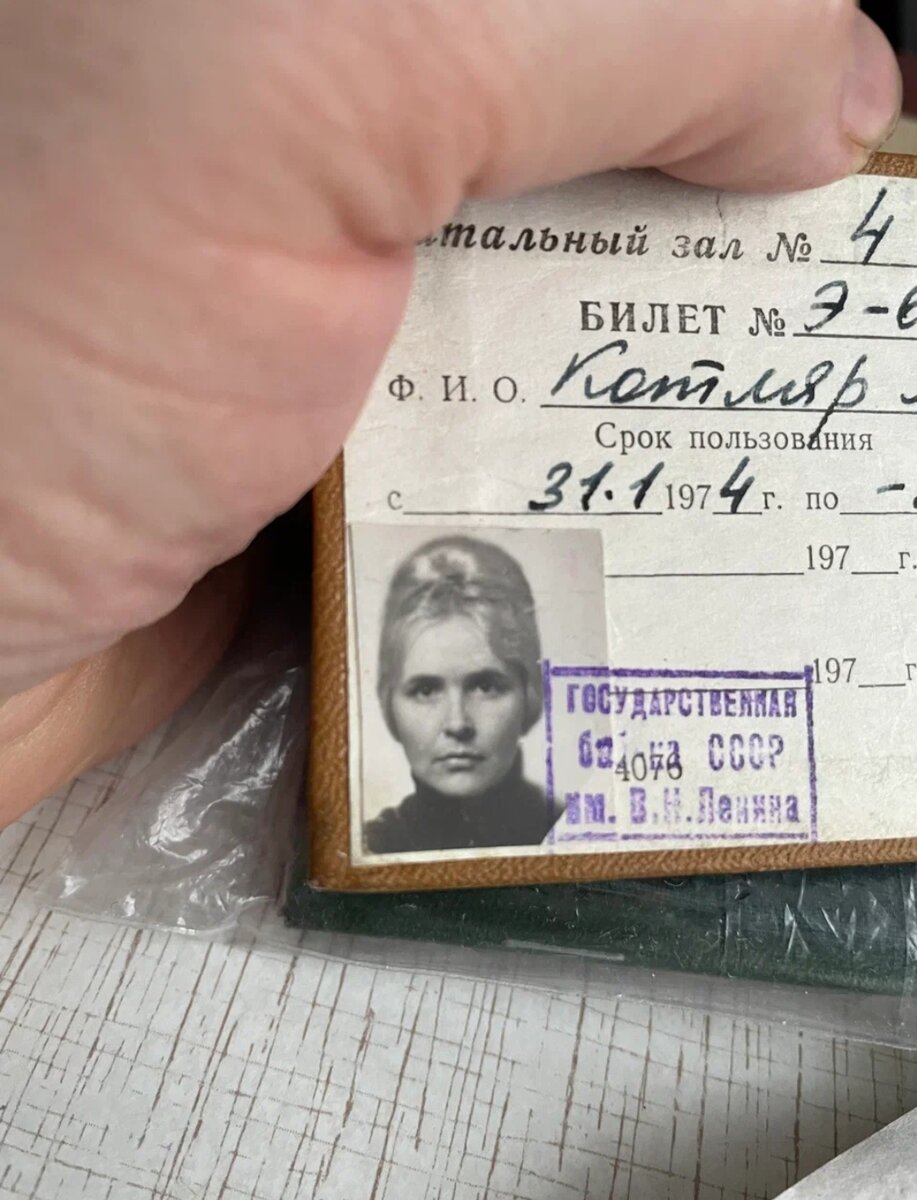 тальный зал № 4
БИЛЕТ № Э-6
Ф. И. О. Котляр
Срок пользования
с 31.1 1974 г. по -
197 г.
197 г
ГОСУДАРСТВЕННАЯ
СССР
4076
им. В.И.Ленина